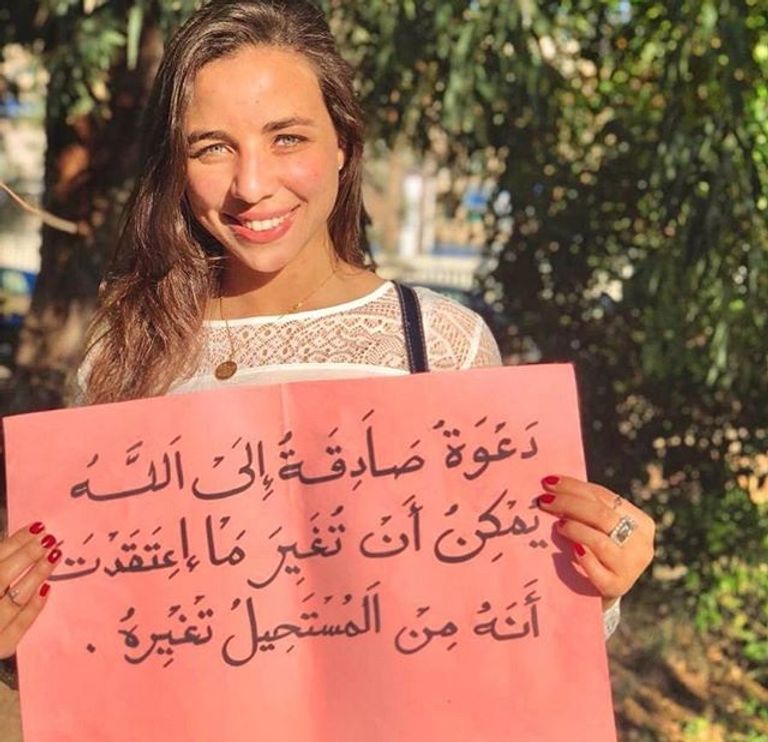 دَعْوَةٌ صَادِقَةٌ إِلَىْ اَللَّهُ
يُمْكِنُ أَنْ تُغَيِرَ مَاْ إِعتَقَدْتَ
أَنَهُ مِنْ اَلمُسْتَحِيلُ تَغْيِرهُ .